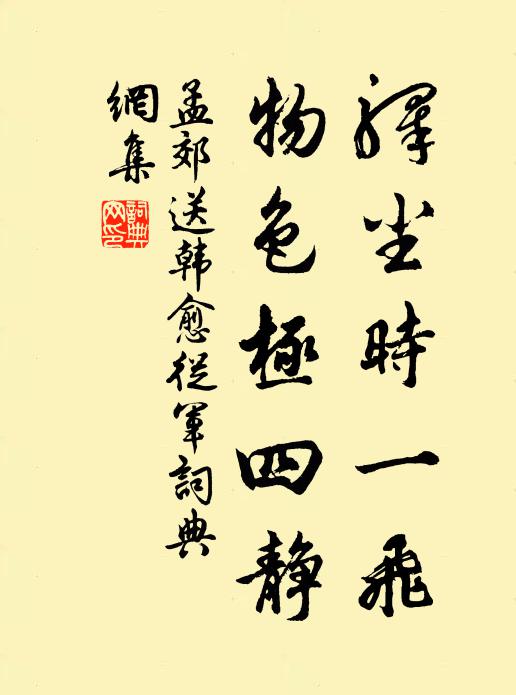 驛尘時一飛
物色極四静
孟郊送韩愈從軍詞典
網集
詞典
网印